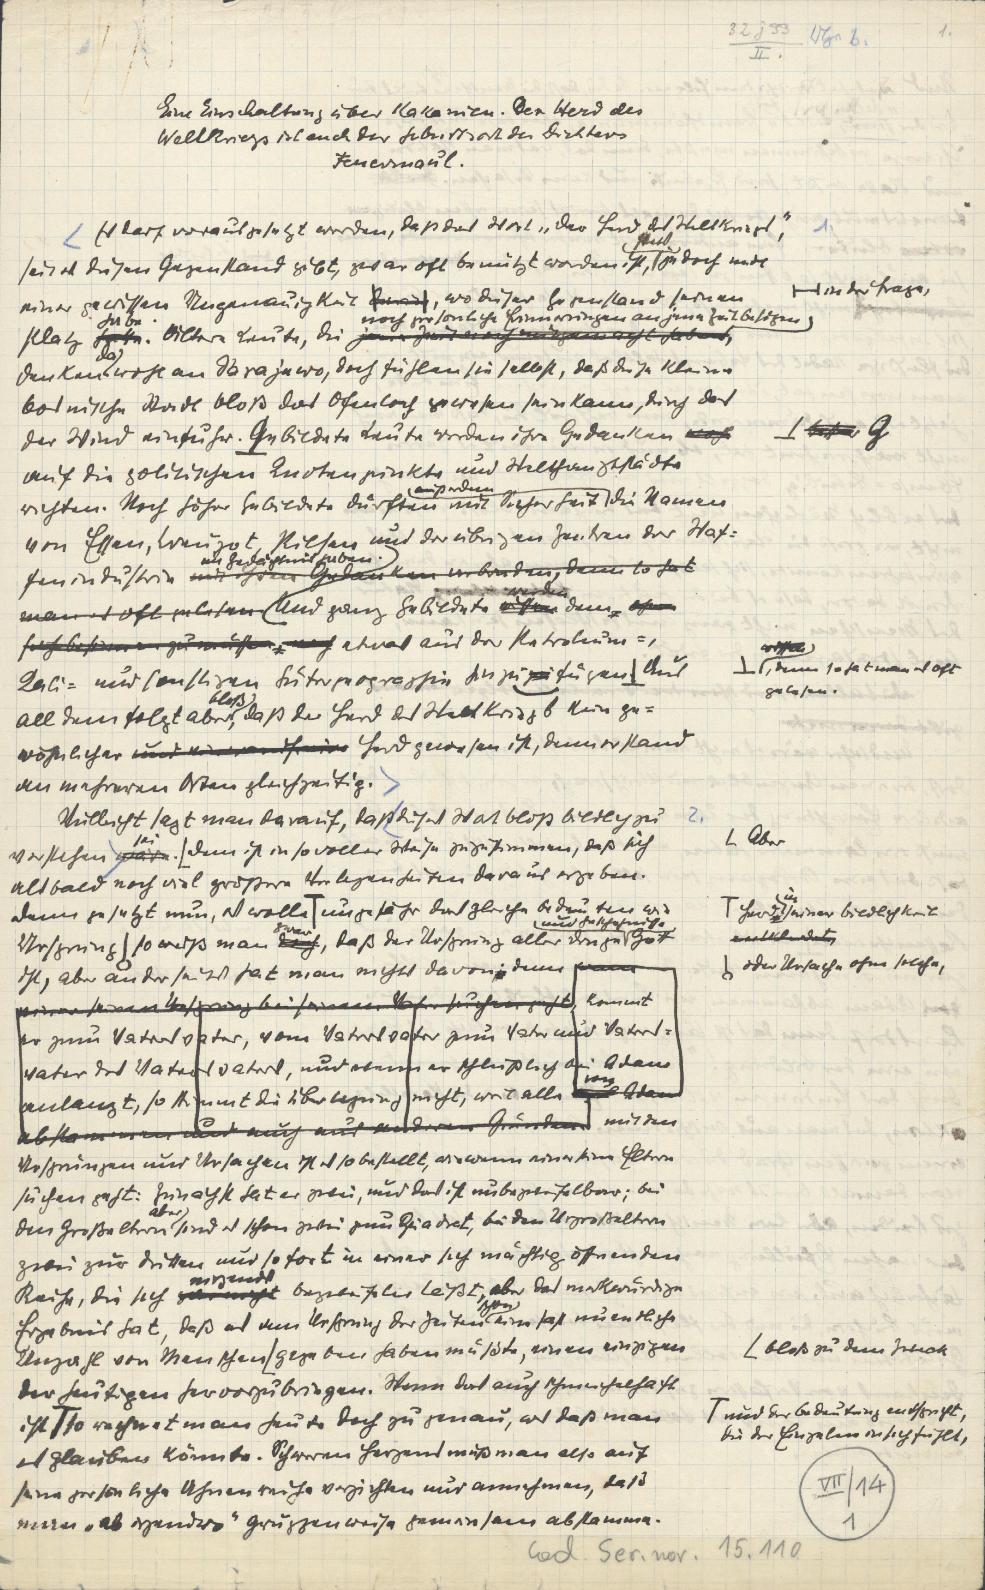 32 j 99
II.
1.
Eine Einschaltung über Kakanien. Der Herd des
Weltkriegs ist auch der Geburtsort des Dichters
Feuermaul.
Es darf vorausgesetzt werden, daß das Wort „der Herd des Weltkriegs", 1.
seit es diesen Gegenstand gibt, zwar oft benützt worden ist, jedoch mit
einer gewissen Ungenauigkeit, wo dieser Gegenstand seinen
in der Frage,
noch persönliche Erinnerungen an jene Zeit besitzen,
habe
Platz. Ältere Leute, die
da
denken wohl an Sarajewo, doch fühlen sie selbst, daß diese kleine
bosnische Stadt bloß das Ofenloch gewesen sein kann, durch das
der Wind einfuhr. Gebildete Leute werden ihre Gedanken
G
auf die politischen Knotenpunkte und Welthauptstädte
richten. Noch höher Gebildete dürften mit Sicherheit die Namen
außerdem
von Essen, Creuzot, Pilsen und der übrigen Zentren der Waf=
im Gedächtnis haben.
fenindustrie
Und ganz Gebildete werden dem
etwas aus der Petroleum=,
Kali= und sonstigen Gütergeographie hinzufügen. Aus
, denn so hat man es oft
gelesen.
bloß
all dem folgt aber, daß der Herd des Weltkriegs kein ge=
wöhnlicher Herd gewesen ist, denn er stand
an mehreren Orten gleichzeitig.
Vielleicht sagt man darauf, daß dieses Wort bloß bildlich zu 2.
verstehen sei. Dem ist in so voller Weise zuzustimmen, daß sich
Aber
alsbald noch viel größere Verlegenheiten daraus ergeben.
Denn gesetzt nun, es wolle ungefähr das gleiche bedeuten wie
Herd in seiner Bildlichkeit
und Geschehnisse
Ursprung so weiß man zwar, daß der Ursprung aller Dinge Gott
oder Ursache ohne solche,
ist, aber anderseits hat man nichts davon; denn
kommt
er zum Vatersvater, vom Vatersvater zum Vater und Vaters=
vater des Vatersvaters, und wenn er schließlich bei Adam
anlangt, so stimmt die Überlegung nicht, weil alle
mit den
Ursprüngen und Ursachen ist es so bestellt, wie wenn einer seine Eltern
suchen geht: Zunächst hat er zwei, und das ist unbezweifelbar; bei
aber
den Großeltern sind es schon zwei zum Quadrat, bei den Urgroßeltern
zwei zur dritten und so fort in einer sich mächtig öffnenden
nirgends
Reihe, die sich bezweifeln läßt, aber das merkwürdige
schon
Ergebnis hat, daß es am Ursprung der Zeiten eine fast unendliche
Unzahl von Menschen gegeben haben müßte, einen einzigen
bloß zu dem Zweck
der heutigen hervorzubringen. Wenn das auch schmeichelhaft
ist so rechnet man heute doch zu genau, als daß man
und der Bedeutung entspricht,
die der Einzelne in sich fühlt,
es glauben könnte. Schweren Herzens muß man also auf
seine persönliche Ahnenreihe verzichten und annehmen, daß
man „ab irgendwo" gruppenweise gemeinsam abstamme.
VII/14
1
Cod. Ser. nov. 15.110